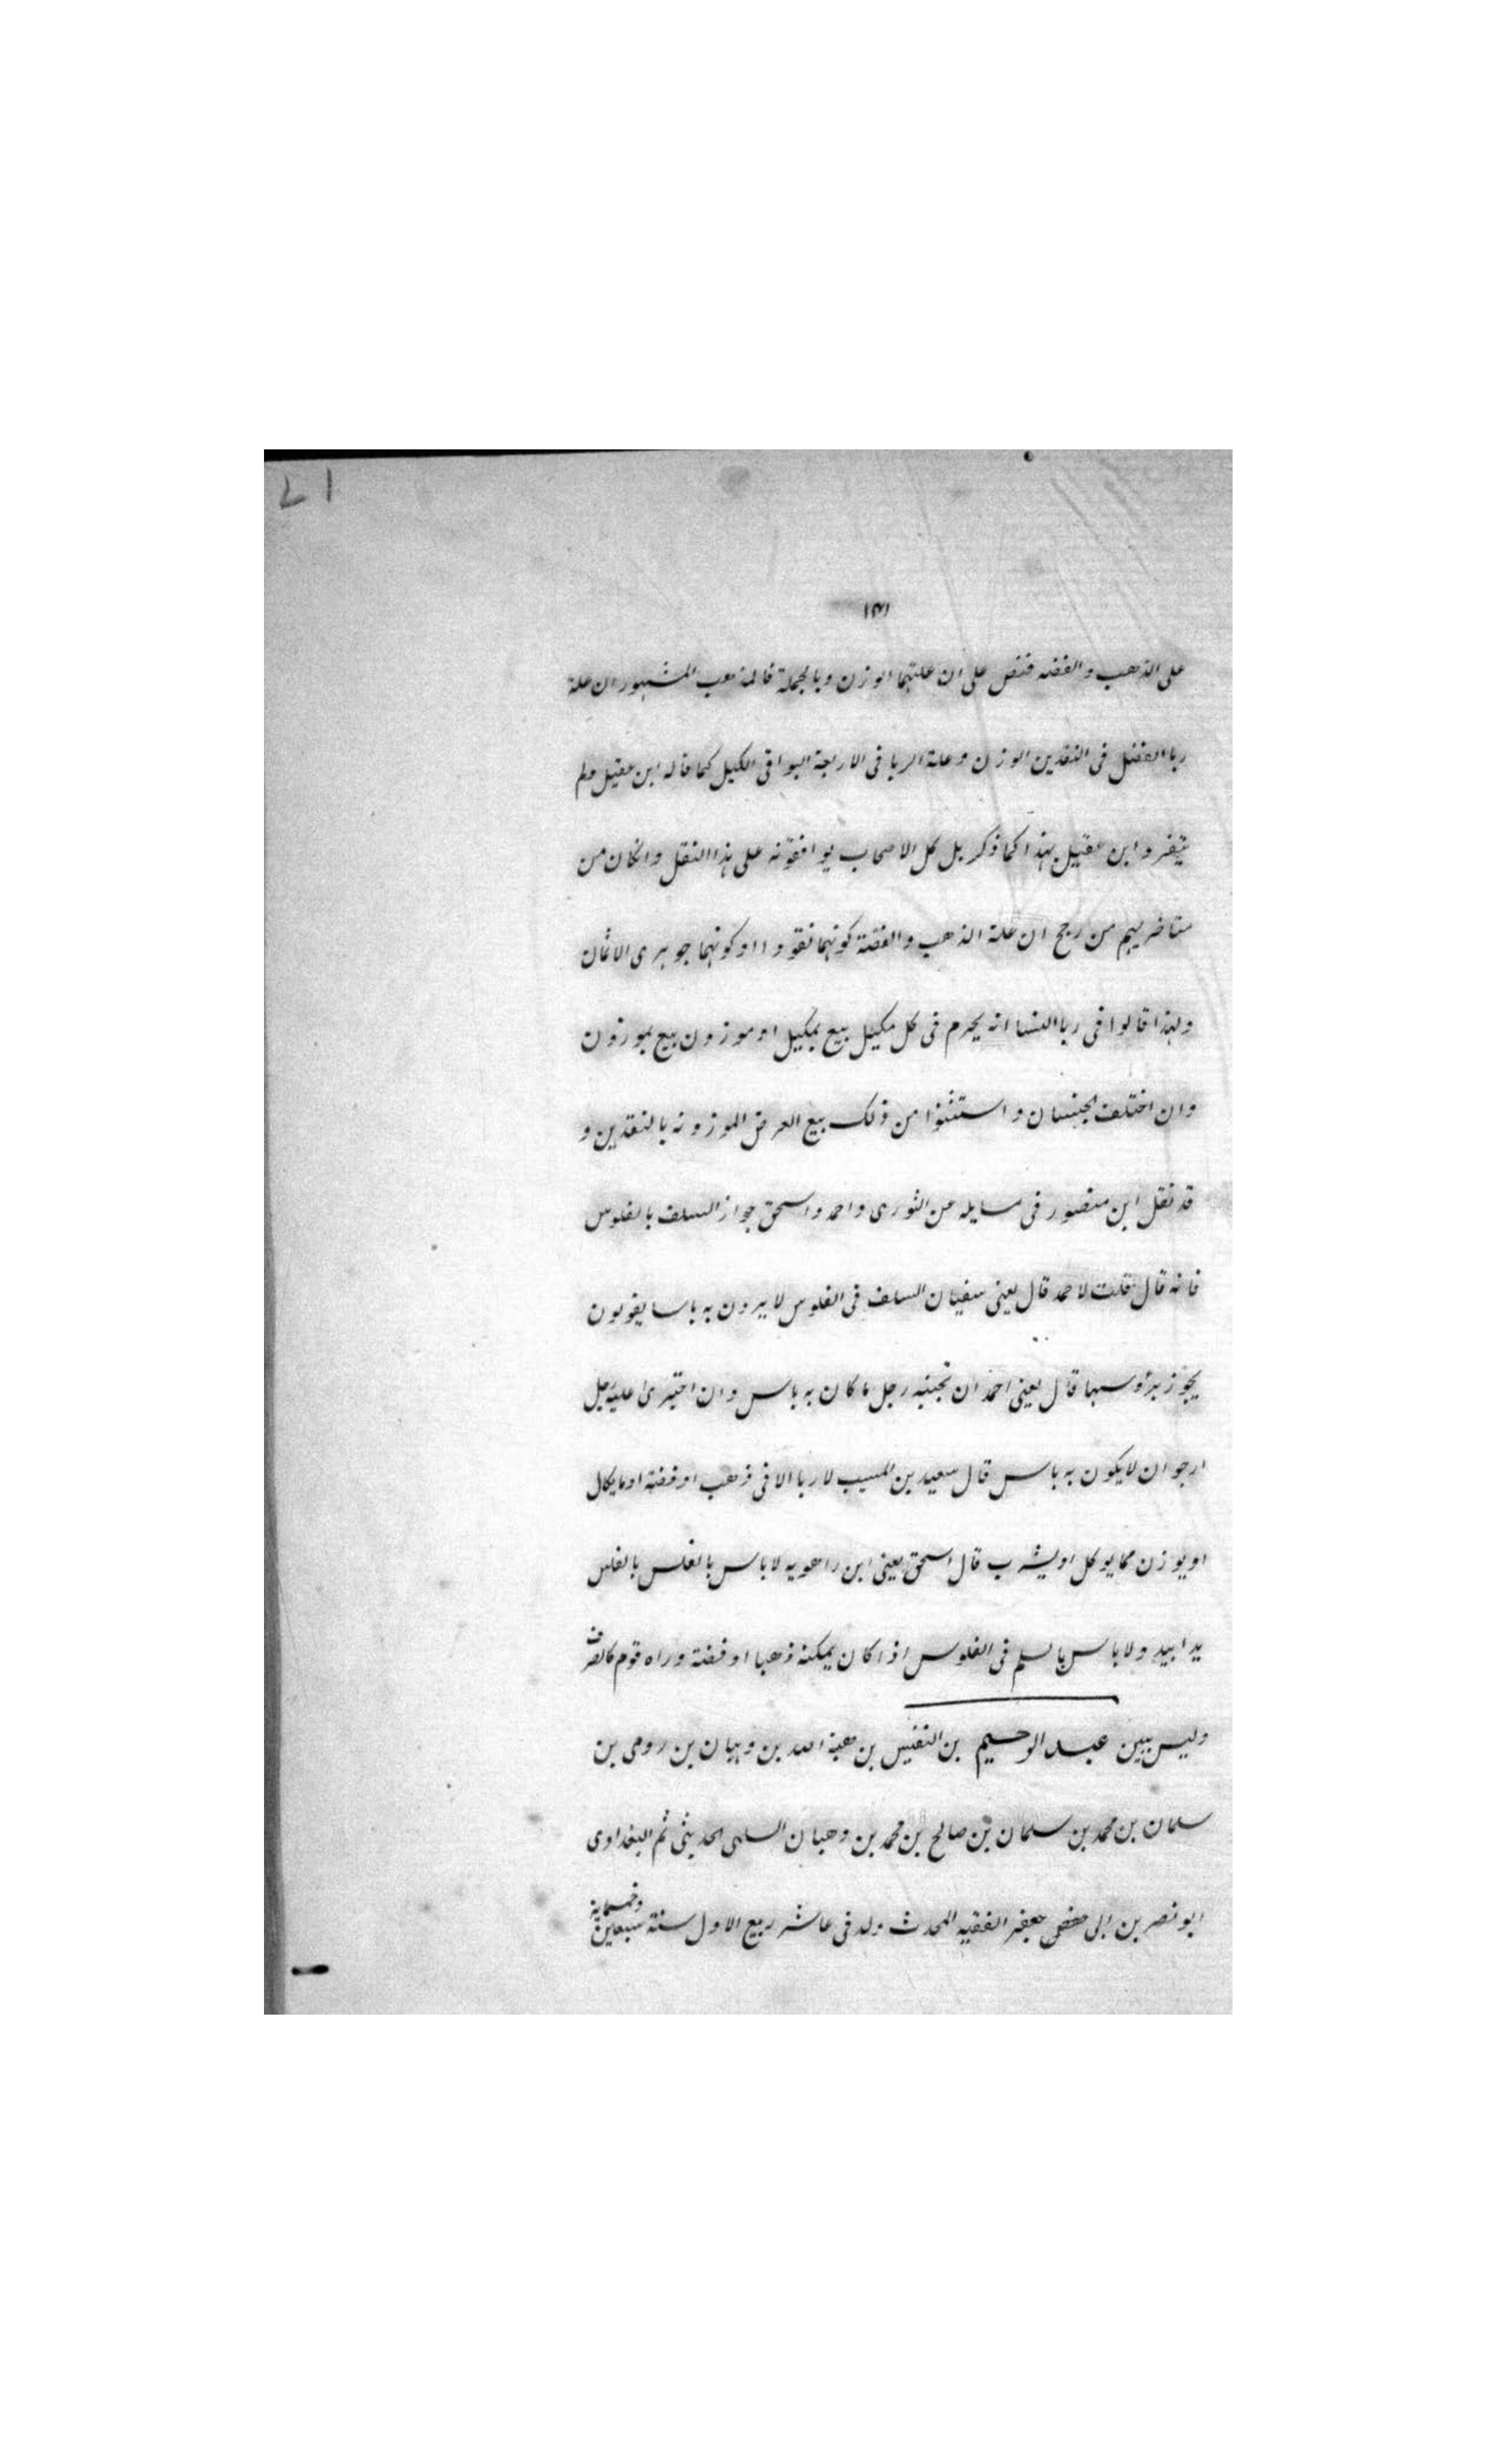 ١٤١
على الذهب والفضه فنص على ان علتهما الوزن وبالجملة فالمذهب المشهور ان علة
ربا الفضل فى النقدين الوزن وعلة الربا فى الاربعة البواقى الكيل كما قاله ابن عقيل ولم
يتفرد ابن عقيل بهذا كما ذكر بل كل الاصحاب يوافقونه على هذا النقل وانكان من
متاخريهم من رجح ان علة الذهب والفضة كونهما نقودا او كونهما جوهرى الاثمان
ولهذا قالوا فى ربا النسا انه يحرم فى كل مكيل بيع بمكيل او موزون بيع بموزون
وان اختلف الجنسان واستثنوا من ذلك بيع العرض الموزونه بالنقدين و
قد نقل ابن منصور فى مسايله عن الثورى واحمد واسحق جواز السلف بالفلوس
فانه قال قلت لاحمد قال يعنى سفيان السلف فى الفلوس لا يرون به باسا يقولون
يجوز برؤوسها قال يعنى احمد ان تجنبه رجل ما كان به باس وان اجترئ عليه رجل
ارجو ان لا يكون به باس قال سعيد بن المسيب لا ربا الا فى ذهب او فضة او ما يكال
او يوزن مما يوكل او يشرب قال اسحق يعنى ابن راهويه لا باس بالفلس بالفلس
يدا بيد ولا باس بالسلم فى الفلوس اذا كان يمكنه ذهبا او فضة وراه قوم كالصرف
وليس ببين عبد الرحيم بن النفيس بن هبة الله بن وهبان بن رومى بن
سلمان بن محمد بن سلمان بن صالح بن محمد بن وهبان السلمى الحديثى ثم البغدادى
ابو نصر بن ابى جعفر الفقيه المحدث ولد فى عاشر ربيع الاول سنة سبعين وخمسماية